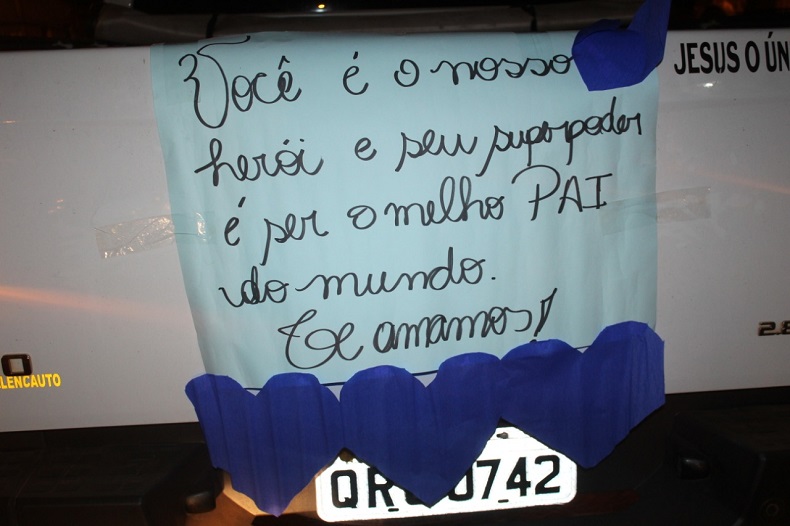 Você é o nosso
JESUS O ÚN
herói e seu superpoder
é ser o melho PAI
do mundo.
Te amamos!
2.8
O
LENCAUTO
QR 0742